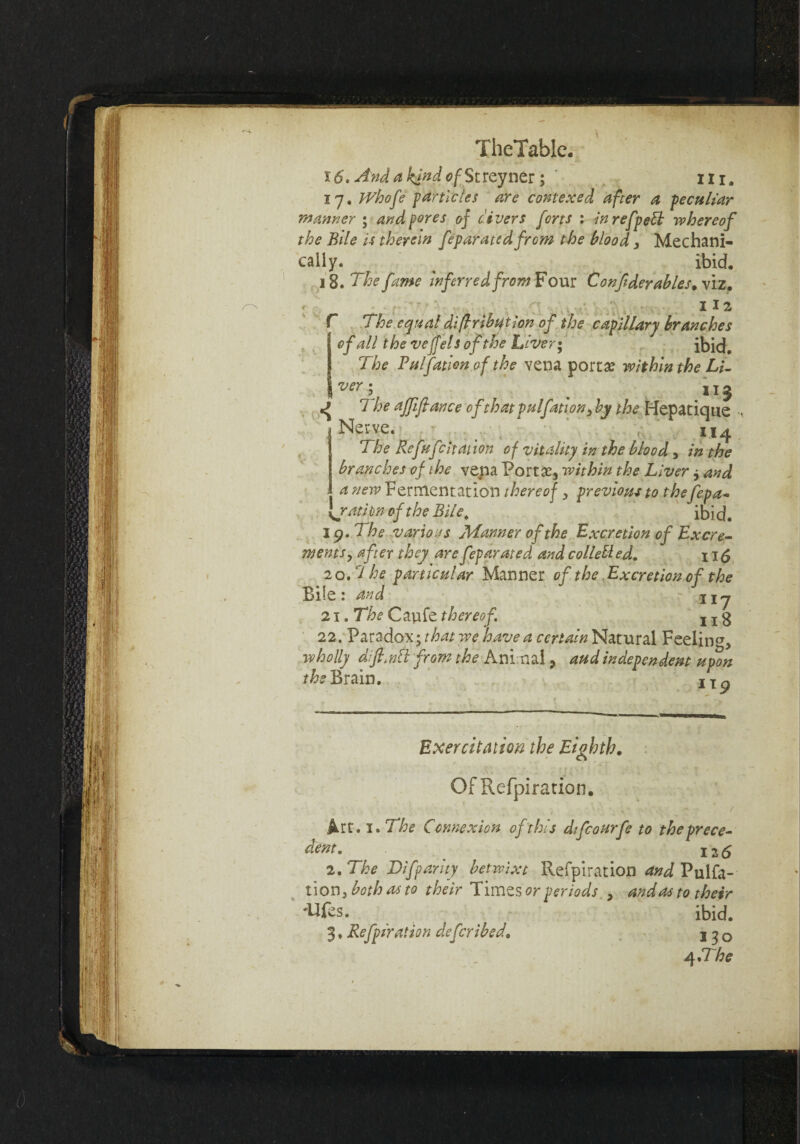 TheTable.
16. And a kjnd of Streyner; 111.
17. Whose particles are contexed after a peculiar
manner; and pores of divers sorts: in respect whereof
the Bile is therein separated from the blood, Mechani-
cally. ibid.
18. The same inferred from Four Considerables. viz.
112
The equal distribution of the capillary branches
of all the vessels of the Liver; ibid.
The Pulsation of the vena portæ within the Li-
ver; 113
The assistance of that pulsation, by the Hepatique
Nerve. 114
The Resuscitation of vitality in the blood, in the
branches of the vena Portæ, within the Liver; and
a new Fermentation thereof, previous to the sepa-
ration of the Bile. ibid.
19. The various Manner of the Excretion of Excre-
ments, after they are separated and collected. 116
20. The particular Manner of the Excretion of the
Bile: and 117
21. The Cause thereof. 118
22. Paradox; that we have a certain Natural Feeling,
wholly distinct from the Animal, and independent upon
the Brain. 119
Exercitation the Eighth.
Of Respiration.
Art. 1. The Connexion of this discourse to the prece-
dent. 126
2. The Disparity betwixt Respiration and Pulsa-
tion, both as to their Times or periods, and as to their
Uses. ibid.
3. Respiration described. 130
4. The